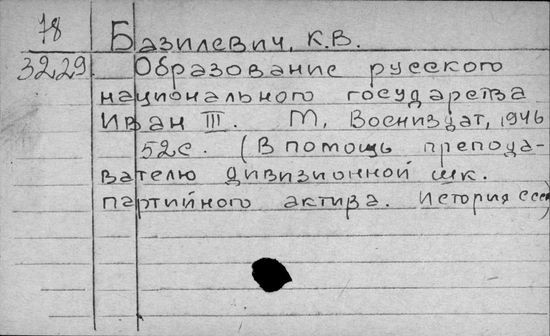 78
Базилевич, К.В.
3229. Образование русского
национального государства
Иван III. М, Воениздат, 1946
52с. (В помощь препода-
вателю дивизионной шк.
партийного актива. История ссср)